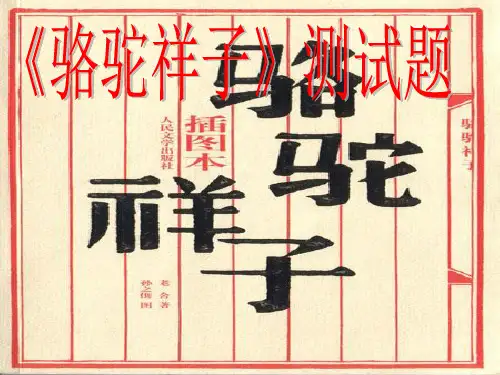 《骆驼祥子》测试题
骆驼
祥子
插图本
人民文学出版社
老舍 著
孙之俊 图
骆驼祥子